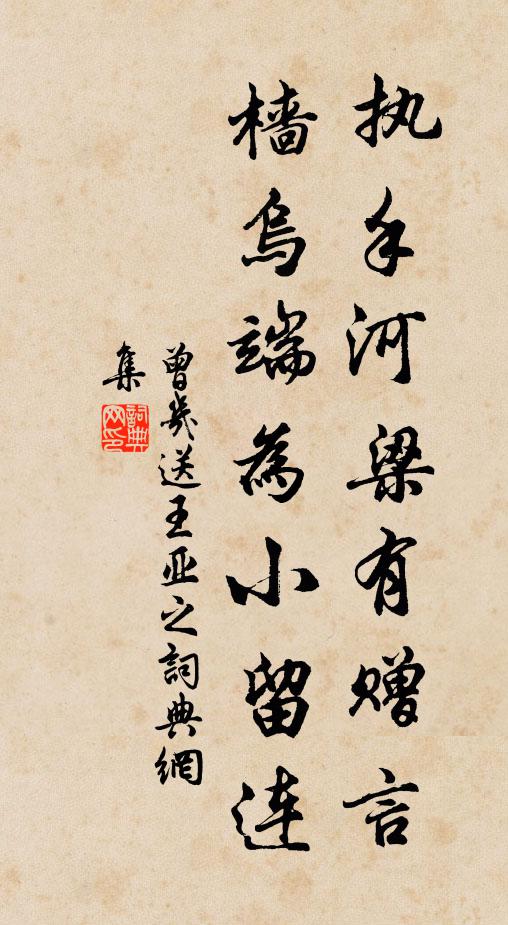 执手河梁有赠言
樯乌端为小留连
曾几送王亚之詞典網
集
詞典
网印